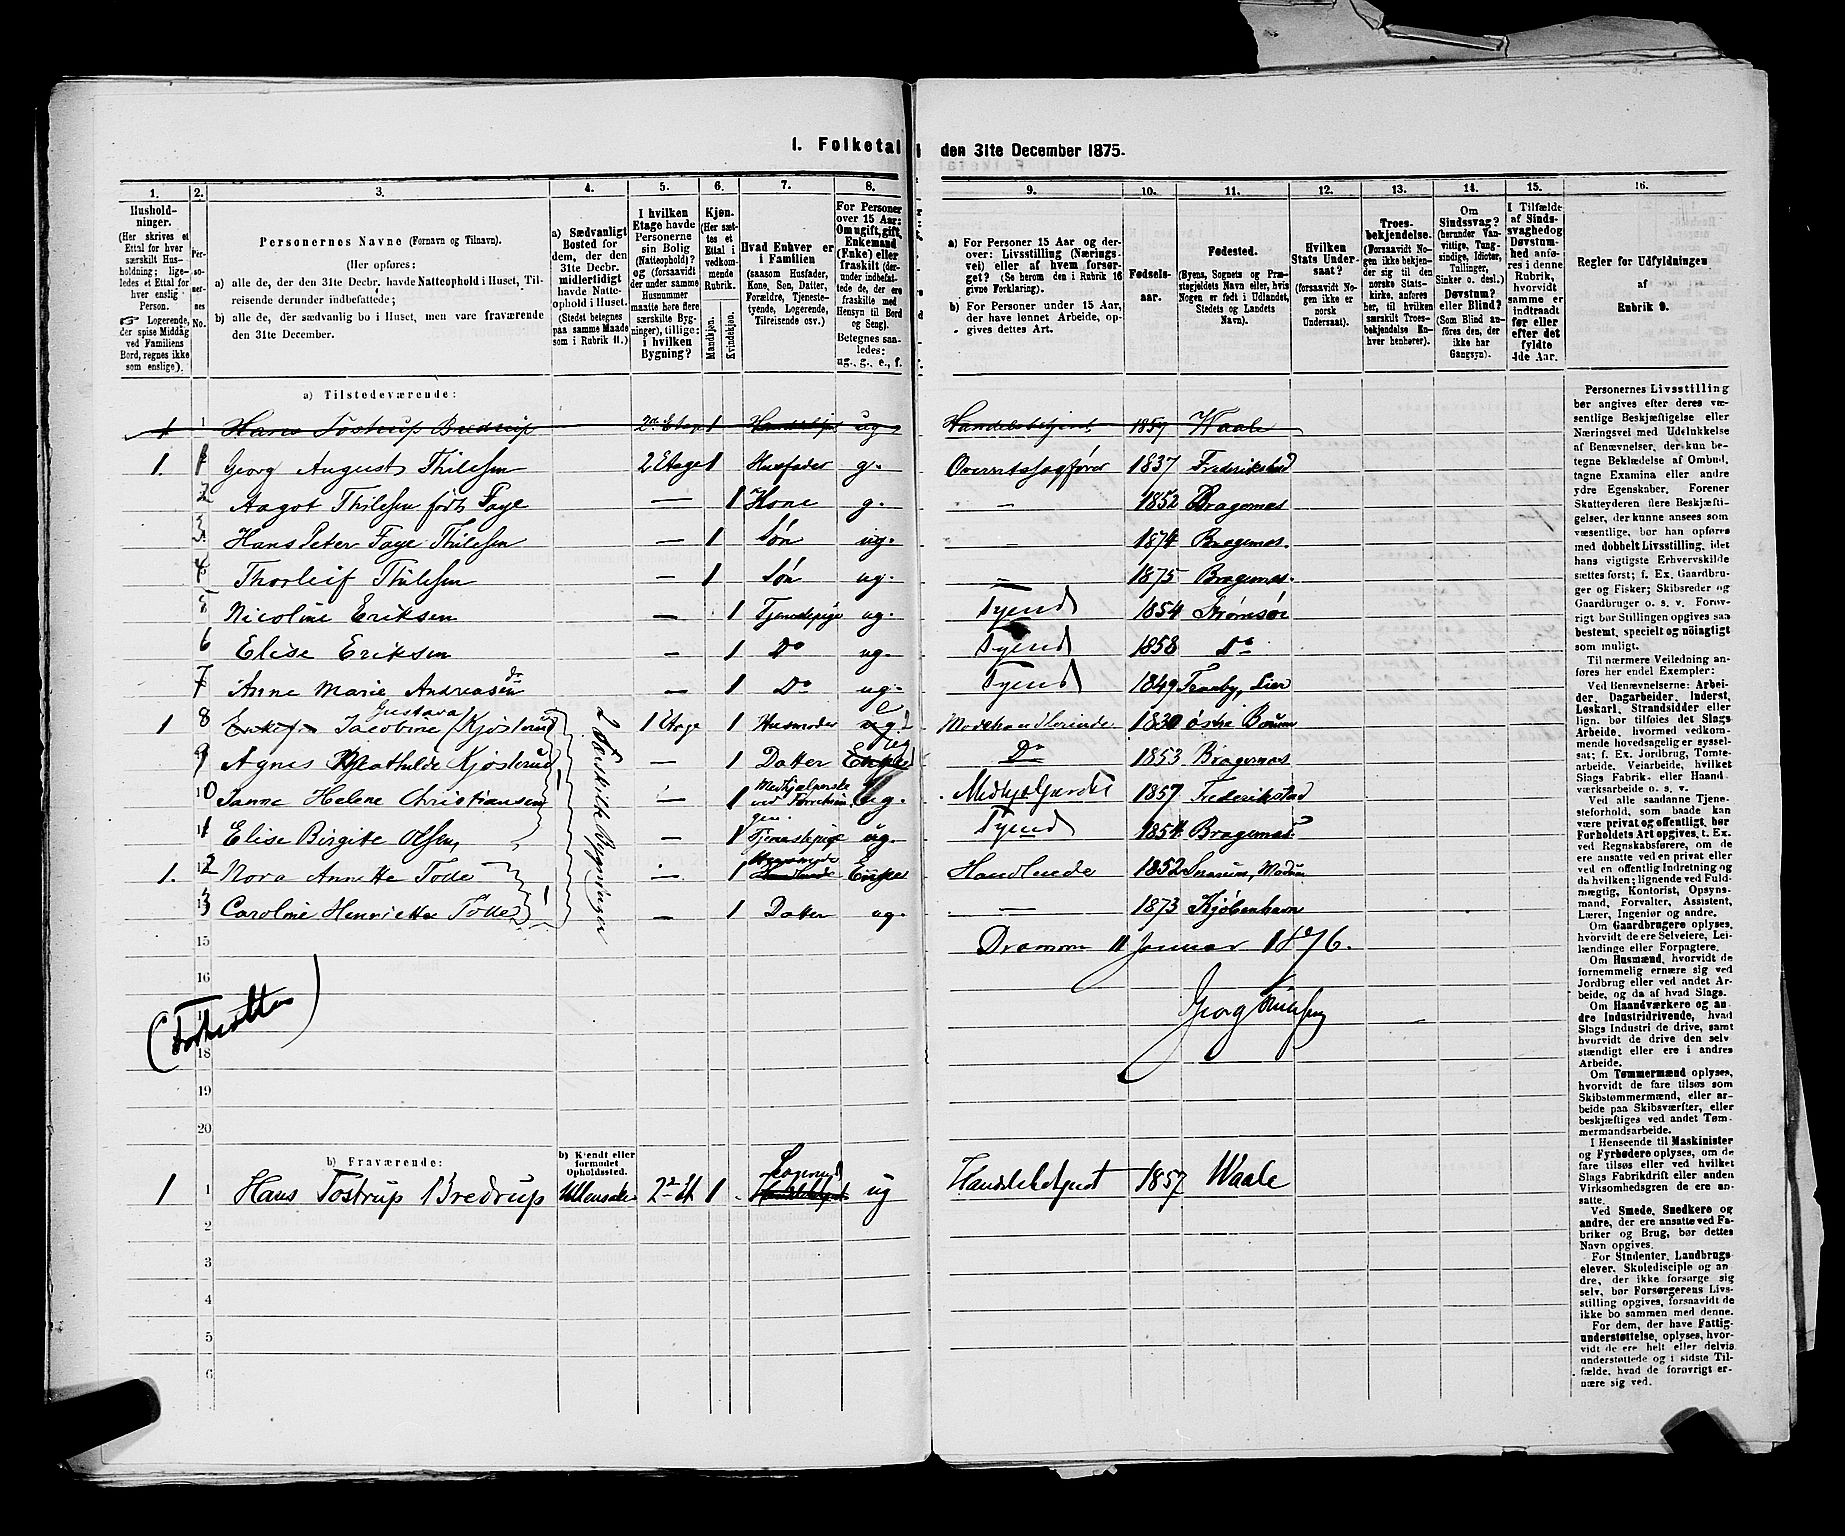 I. Folketal den 31te December 1875.
1. 2. 3. 4. 5. 6. 7. 8. 9. 10. 11. 12. 13. 14. 15. 16.
Husholdninger.
(Her skrives et
Ettal for hver
særskilt Husholdning; ligeledes
et Ettal for
hver enslig
Person.
☞ Logerende,
der spise Middag
ved Familiens
Bord, regnes ikke
som enslige).
Personernes No.
Personernes Navne (Fornavn og Tilnavn).
(Her opføres:
a) alle de, der den 31te Decbr. havde Natteophold i Huset, Tilreisende
derunder indbefattede;
b) alle de, der sædvanlig bo i Huset, men vare fraværende
den 31te December.
a) Sædvanligt
Bosted for
dem, der den
31te Decbr.
midlertidigt
havde Natteophold
i Huset.
(Stedet betegnes
paa samme Maade
som i Rubrik 11.)
I hvilken
Etage havde
Personerne
sin Bolig
(Natteophold)?
og (forsaavidt
der under samme
Husnummer
maatte høre flere
særskilte Bygninger),
tillige:
i hvilken
Bygning?
Kjøn.
(Her sættes
et Ettal i
vedkommende
Rubrik.
Mandkjøn. Kvindekjøn.
Hvad Enhver er
i Familien
(saasom Husfader,
Kone, Søn, Datter,
Forældre, Tjenestetyende,
Logerende,
Tilreisende osv.)
For Personer
over 15 Aar:
Om ugift, gift,
Enkemand
(Enke) eller
fraskilt (derunder
indbefattede
de, der ere
fraskilte med
Hensyn til Bord
og Seng).
Betegnes saaledes:
ug., g., e., f.
a) For Personer 15 Aar og derover:
Livsstilling (Næringsvei)
eller af hvem forsørget?
(Se herom den i Rubrik 16
givne Forklaring).
b) For Personer under 15 Aar,
der have lønnet Arbeide, opgives
dettes Art.
Fødselsaar.
Fødested.
(Byens, Sognets og Præstegjeldets
Navn eller, hvis
Nogen er født i Udlandet,
Stedets og Landets
Navn).
Hvilken
Stats Undersaat?
(forsaavidt Nogen
ikke er
norsk
Undersaat).
Troesbekjendelse.
(Forsaavidt Nogen
ikke bekjender
sig til den
norske Statskirke,
anføres
her, til hvilken
særskilt Troesbekjendelse
Enhver
henhører).
Om
Sindssvag?
(herunder Vanvittige,
Tungsindige,
Idioter,
Tullinger,
Sinker o. desl.)
Døvstum?
eller Blind?
(Som Blind anføres
den, der
ikke har
Gangsyn).
I Tilfælde
af Sindssvaghed
og
Døvstumhed
anføres
i denne
Rubrik,
hvorvidt
samme er
indtraadt
før eller
efter det
fyldte
4de Aar.
Regler for Udfyldningen
af
Rubrik 9.
a) Tilstedeværende:
1 1 Hans Tostrup Bredrup 2en Etage 1 ug Handelsbetjent 1857 Waale
1. 1 Georg August Thilesen 2 Etage 1 Husfader g. Overretssagfører 1837 Frederikstad
2 Aagot Thilesen født Faye — 1 Kone g. — 1852 Bragernæs
3 Hans Peter Faye Thilesen — 1 Søn ug. — 1874 Bragernæs.
4 Thorleif Thilesen — 1 Søn ug. — 1875 Bragernæs.
5 Nicoline Eriksen — 1 Tjenestepige ug. Tyend 1854 Strømsøe
6 Elise Eriksen — 1 Do ug. Tyend 1858 Do
7 Anne Marie Andreasen — 1 Do ug. Tyend 1849 Tranby, Lier
1 8 Jacobine Gustava Kjøsterud 1 Etage 1 Husmoder e Modehandlerinde 1830 østre Bærum
9 Agnes Mathilde Kjøsterud 1 Datter ug Do 1853 Bragernæs
10 Janne Helene Christiansen — 1 Medhjælperske ved Forretningen. ug. Medhjælperske 1857 Frederikstad
11 Elise Birgite Olsen, — 1 Tjenestepige ug. Tyend 1854 Bragernæs
1. 12 Nora Annette Tode — 1 Enke Handlende 1852 Snarum, Modum
13 Caroline Henriette Tode — 1 Datter ug. — 1873 Kjøbenhavn
2 særskilte Bygninger
15
Drammen 11 Januar 1876.
16
Georg Thilesen
(Forhutten)
18
19
20
b) Fraværende:
b) Kjendt eller
formodet
Opholdssted.
1 1 Hans Tostrup Bredrup Ullensaker 2 et 1 Logerende ug Handelsbetjent 1857 Waale
2
3
4
5
6
Personernes Livsstilling
bør angives efter deres væsentlige
Beskjæftigelse eller
Næringsvei med Udelukkelse
af Benævnelser, der kun betegne
Beklædelse af Ombud,
tagne Examina eller andre
ydre Egenskaber. Forener
Skatteyderen flere Beskjæftigelser,
der kunne ansees som
væsentlige, bør han opføres
med dobbelt Livsstilling, idet
hans vigtigste Erhvervskilde
sættes først; f. Ex. Gaardbruger
og Fisker; Skibsreder og
Gaardbruger o. s. v. Forøvrigt
bør Stillingen opgives saa
bestemt, specielt og nøiagtigt
som muligt.
Til nærmere Veiledning anføres
her endel Exempler:
Ved Benævnelserne: Arbeider,
Dagarbeider, Inderst,
Løskarl, Strandsidder eller
lign. bør tilføies det Slags
Arbeide, hvormed vedkommende
hovedsagelig er sysselsat;
f. Ex. Jordbrug, Tomtearbeide,
Veiarbeide, hvilket
Slags Fabrik- eller Haandværksarbeide
o. s. v.
Ved alle saadanne Tjenesteforhold,
som baade kan
være privat og offentligt, bør
Forholdets Art opgives, t. Ex.
ved Regnskabsførere, om de
ere ansatte ved en privat eller
ved en offentlig Indretning og
da hvilken; lignende ved Fuldmægtig,
Kontorist, Opsynsmand,
Forvalter, Assistent,
Lærer, Ingeniør og andre.
Om Gaardbrugere oplyses,
hvorvidt de ere Selveiere, Leilændinge
eller Forpagtere.
Om Husmænd, hvorvidt de
fornemmelig ernære sig ved
Jordbrug eller ved andet Arbeide,
og da af hvad Slags.
Om Haandværkere og andre
Industridrivende, hvad
Slags Industri de drive, samt
hvorvidt de drive den selvstændigt
eller ere i andres
Arbeide.
Om Tømmermænd oplyses,
hvorvidt de fare tilsøs som
Skibstømmermænd, eller arbeide
paa Skibsværfter, eller
beskjæftiges ved andet Tømmermandsarbeide.
I Henseende til Maskinister
og Fyrbødere oplyses, om de
fare tilsøs eller ved hvilket
Slags Fabrikdrift eller anden
Virksomhedsgren de ere ansatte.
Ved Smede, Snedkere og
andre, der ere ansatte ved Fabriker
og Brug, bør dettes
Navn opgives.
For Studenter, Landbrugselever,
Skoledisciple og andre,
der ikke forsørge sig
selv, bør Forsørgerens Livsstilling
opgives, forsaavidt de
ikke bo sammen med denne.
For dem, der have Fattigunderstøttelse,
oplyses, hvorvidt
de ere helt eller delvis
understøttede og i sidste Tilfælde,
hvad de forøvrigt ernære
sig ved.